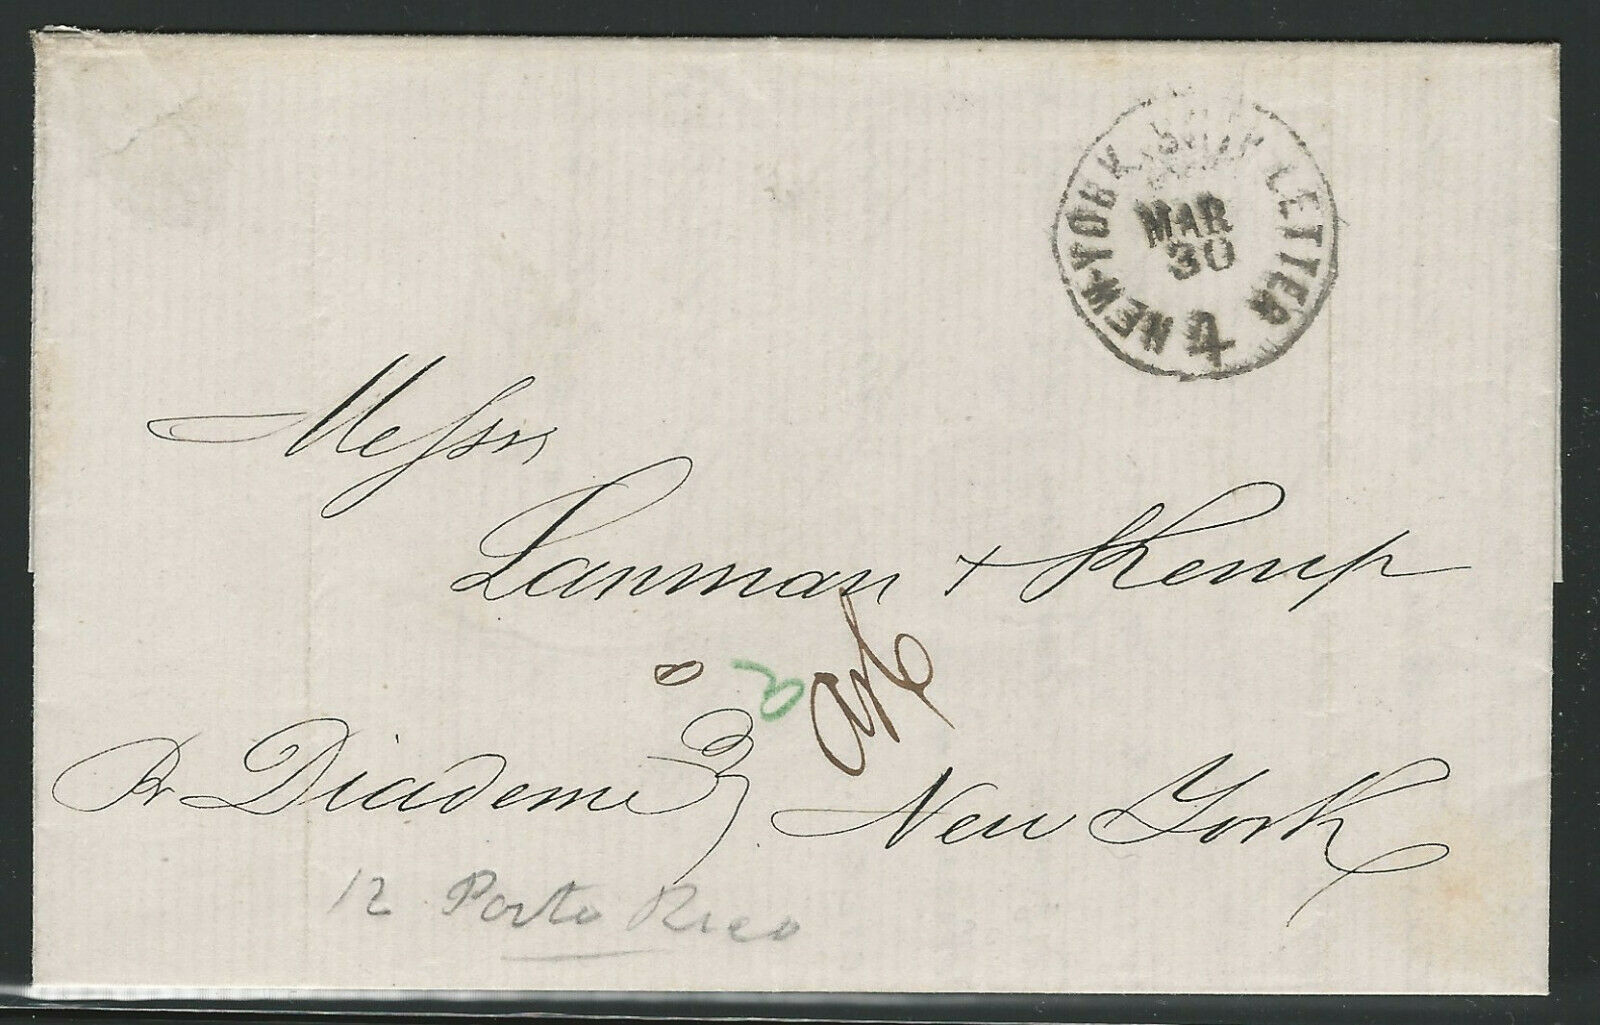 NEW-YORK SHIP LETTER
MAR
30
4
Messrs
Lanman + Kemp
2
Pr Diadem
New York
12 Porto Rico